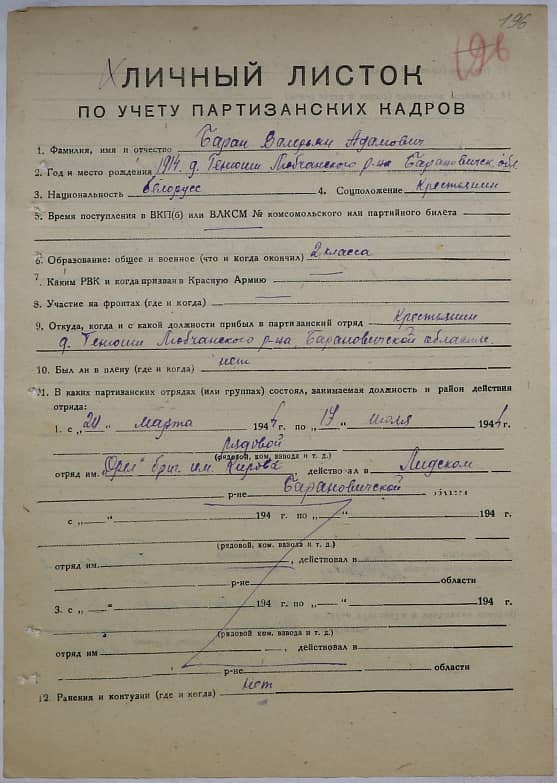 196
196
ЛИЧНЫЙ ЛИСТОК
ПО УЧЕТУ ПАРТИЗАНСКИХ КАДРОВ
1. Фамилия, имя и отчество Баран Валерьян Адамович
2. Год и место рождения 1914 д. Генюши Любчанского р-на Баранович. обл
3. Национальность белорусс 4. Соцположение Крестьянин
5. Время поступления в ВКП(б) или ВЛКСМ № комсомольского или партийного билета
6. Образование: общее и военное (что и когда окончил) 2 класса
7. Каким РВК и когда призван в Красную Армию
8. Участие на фронтах (где и когда)
9. Откуда, когда и с какой должности прибыл в партизанский отряд Крестьянин
д. Генюши Любчанского р-на, Барановичской области.
10. Был ли в плену (где и когда) нет
11. В каких партизанских отрядах (или группах) состоял, занимаемая должность и район действия
отряда:
1. с „20 " марта 1944 г. по „14 " июля 1944 г.
рядовой
(рядовой, ком. взвода и т. д.)
отряд им. „Орел" бриг. им. Кирова, действовал в Лидском
р-не Барановичской области
с „ " 194 г. по „ " 194 г.
(рядовой, ком. взвода и т. д.)
отряд им. , действовал в
р-не области
3. с „ " 194 г. по „ " 194 г.
(рядовой, ком. взвода и т. д.)
отряд им , действовал в
р-не области
12. Ранения и контузии (где и когда) нет